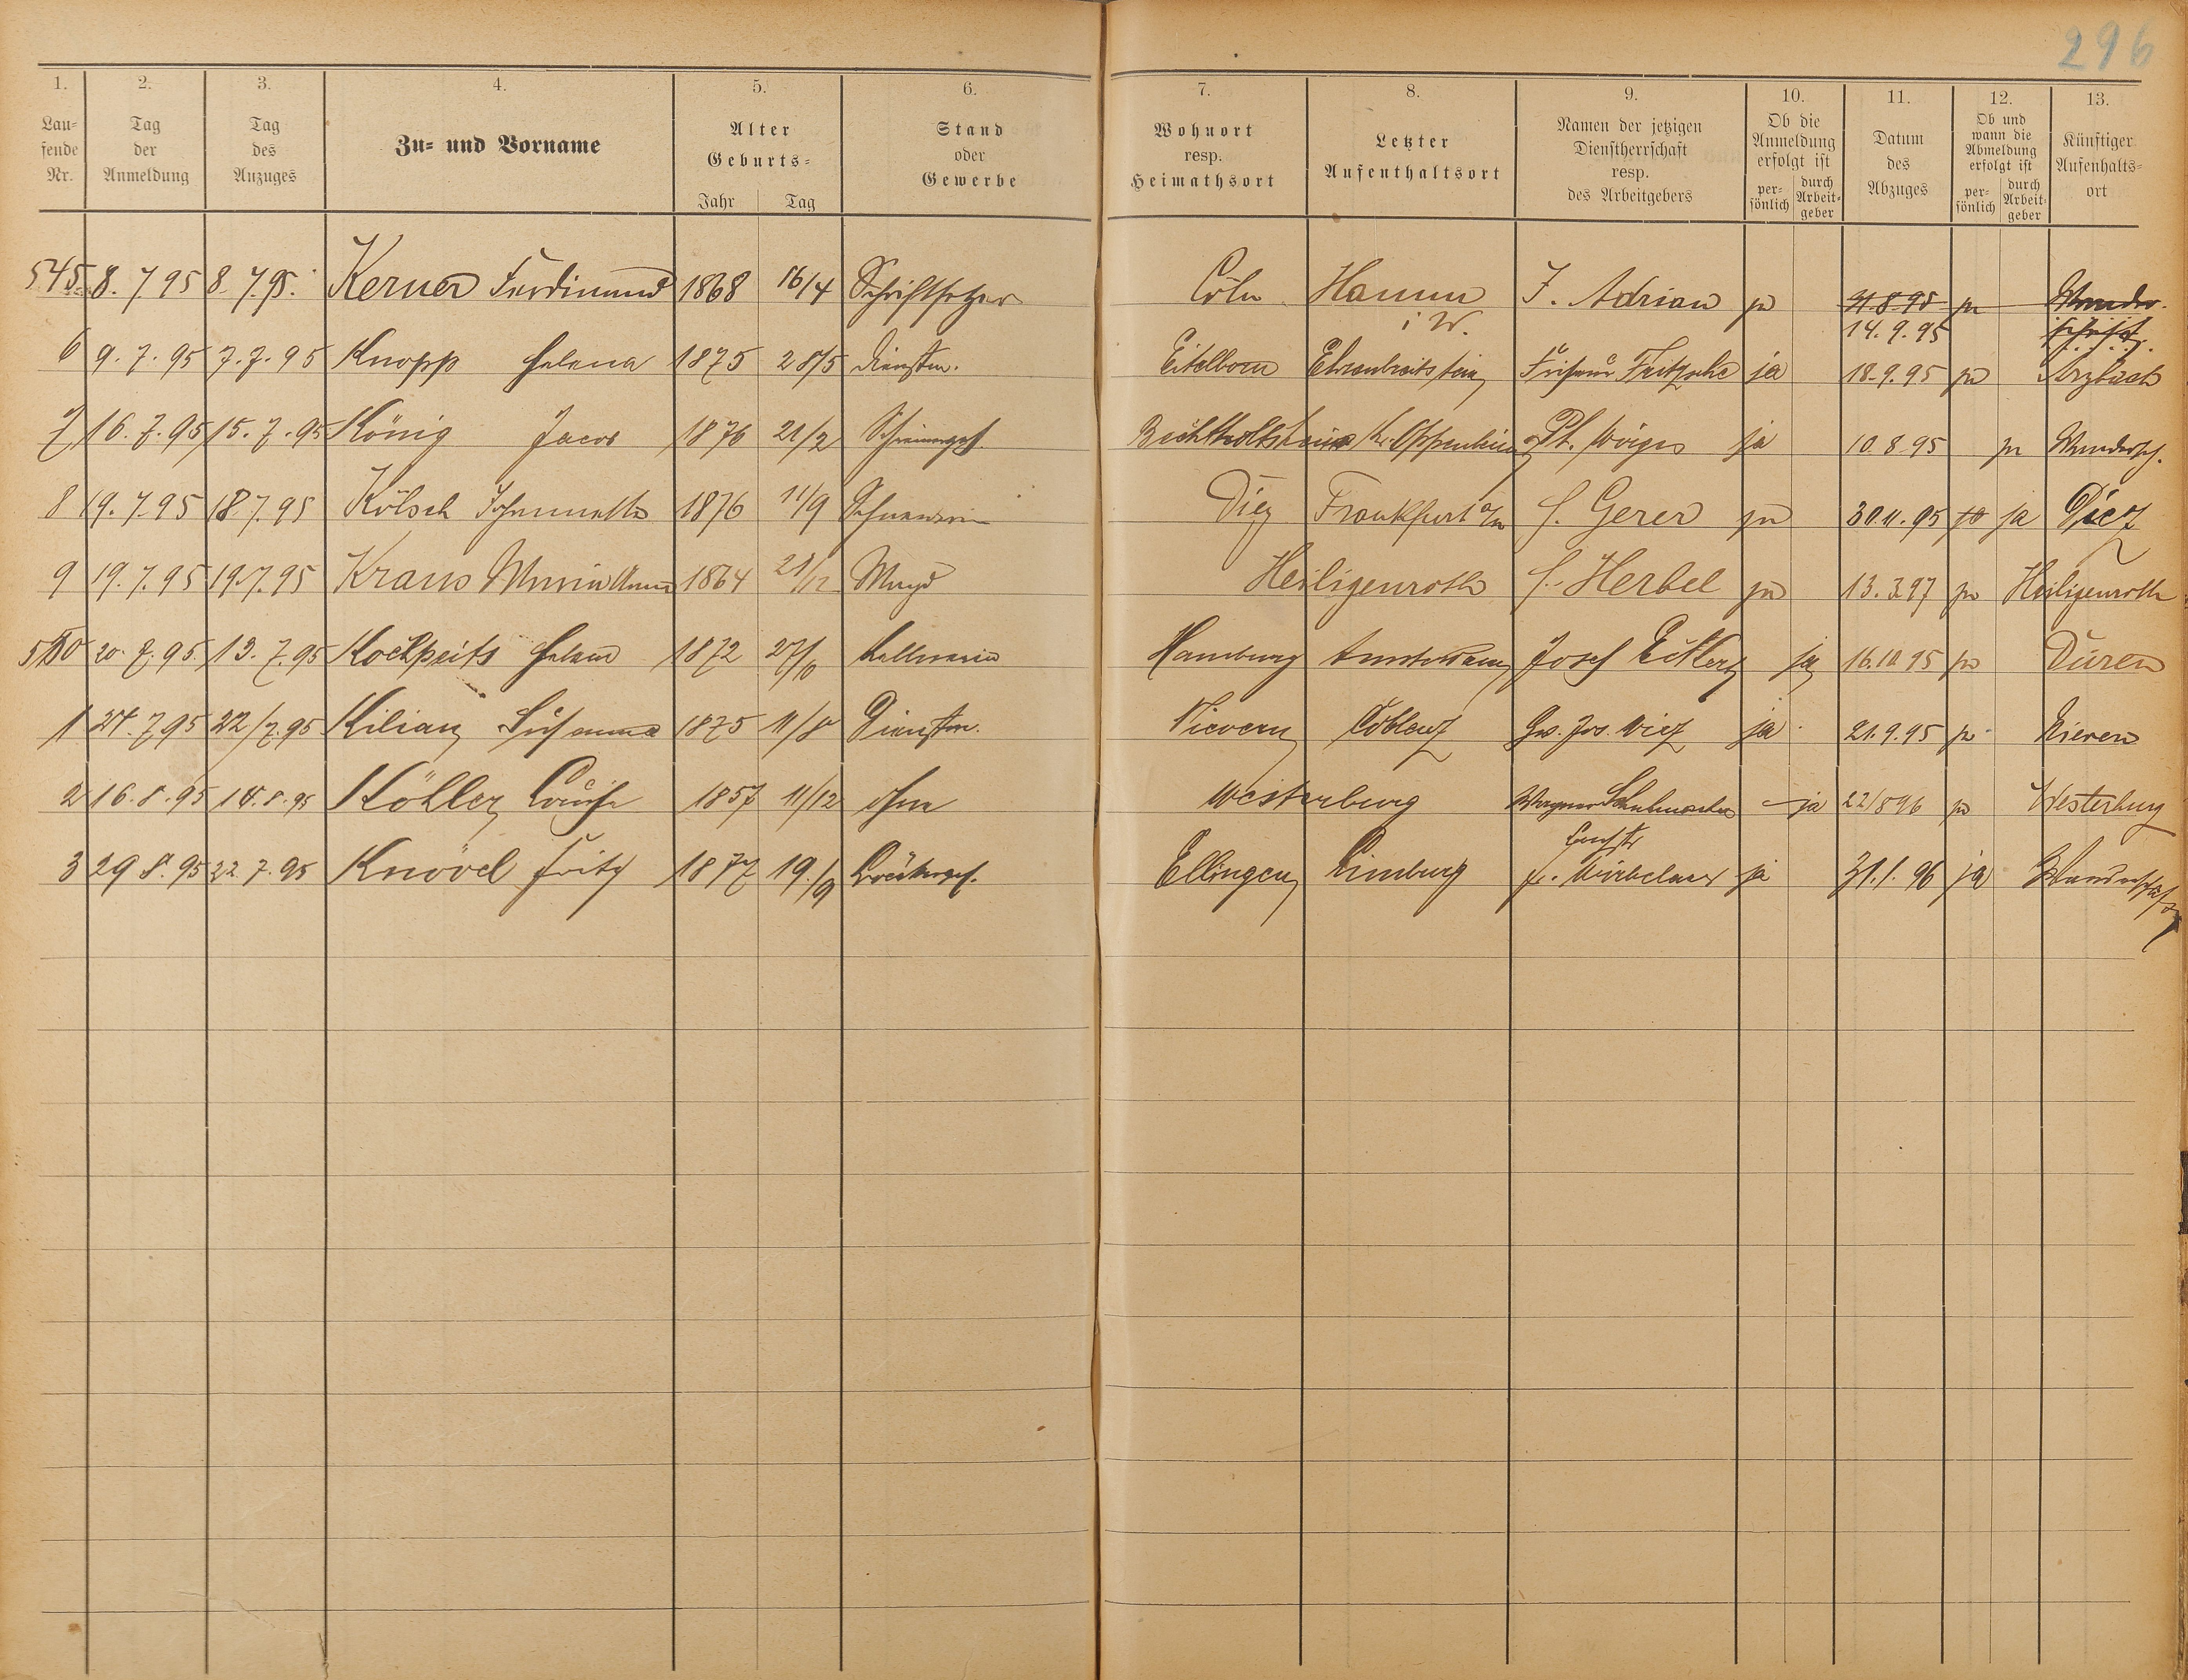 296
1. 2. 3. 4. 5. 6. 7. 8. 9. 10. 11. 12. 13.
Lau-
fende
Nr.
Tag
der
Anmeldung
Tag
des
Anzuges
Zu- und Vorname
Alter
Geburts-
Jahr Tag
Stand
oder
Gewerbe
Wohnort
resp.
Heimathsort
Letzter
Aufenthaltsort
Namen der jetzigen
Dienstherrschaft
resp.
des Arbeitgebers
Ob die
Anmeldung
erfolgt ist
per-
sönlich
durch
Arbeit-
geber
Datum
des
Abzuges
Ob und
wann die
Abmeldung
erfolgt ist
per-
sönlich
durch
Arbeit-
geber
Künftiger
Aufenthalts-
ort
545 8. 7 95 8. 7. 95. Kerner Ferdinand 1868 16/4 Schriftsetzer Cöln Hamm J. Adrian ja 31.8.95 ja Wander-
i W. 14. 9. 95 schaft
6 9. 7. 95 7. 7. 95 Knopp Helena 1875 28/5 Dienstm. Eitelborn Ehrenbreitstein Friseur Fritzsche ja 18. 9. 95 ja Arzbach
7 16. 7. 95 15. 7. 95 König Jacob 1876 21/2 Schreinergeh. Kr. Oppenheim Ph. ja 10. 8. 95 ja Wandersch.
8 19. 7. 95 18 7. 95 Kölsch Johannette 1876 11/9 Diez Frankfurt a/m H. Gerer ja 30. 11. 95 ja ja Diez
9 19. 7. 95 19. 7. 95 Kraus Maria Anna 1864 21/12 Magd Heiligenroth H. Herbel ja 13. 3. 97 ja Heiligenroth
550 20. 7. 95. 13. 7. 95 Helene 1872 27/10 Kellnerin Hamburg Amsterdam Josef ja 16. 10 95 ja Düren
1 24. 7. 95 22/7. 95 Kilian Susanna 1875 11/8 Dienstm. Nievern Coblenz Gw. Jos. ja 21. 9. 95 ja Nievern
2 16. 8. 95 14. 8. 95 Köhler Louise 1857 11/12 ohne Westerburg Wagner ja 22/8 96 ja Westerburg
3 29 8. 95 22. 7. 95 Knövel Fritz 1877 19./9 Ellingen Limburg ja 31. 1. 96 ja Wanderschaft